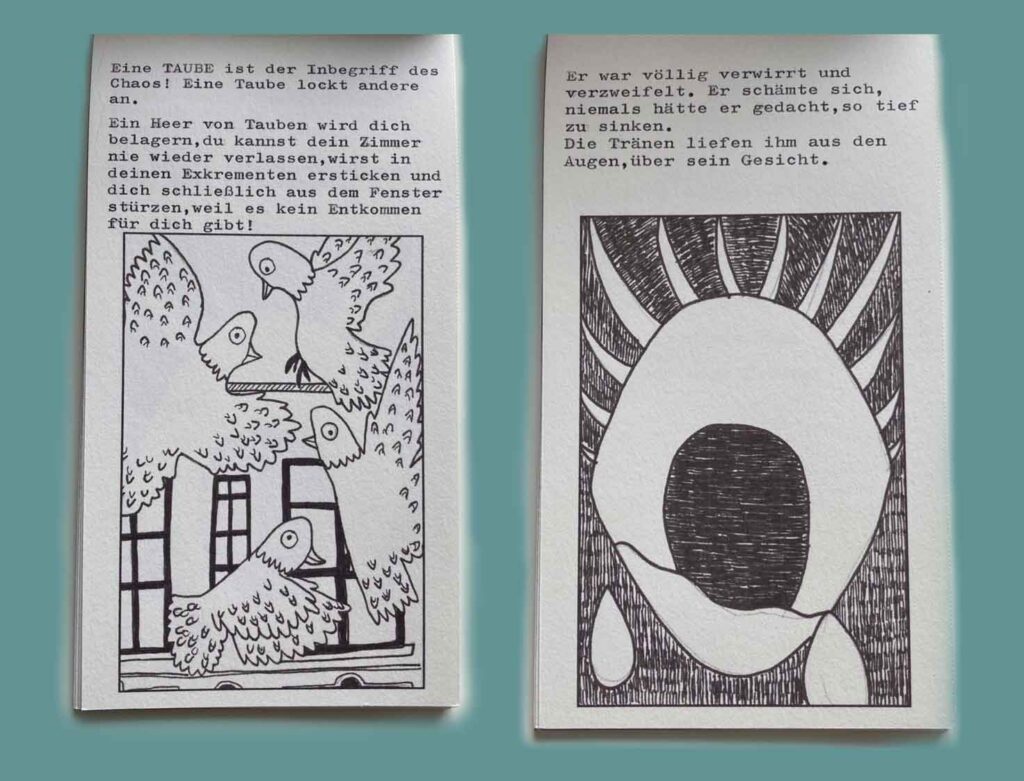 Eine TAUBE ist der Inbegriff des
Chaos! Eine Taube lockt andere
an.
Ein Heer von Tauben wird dich
belagern,du kannst dein Zimmer
nie wieder verlassen,wirst in
deinen Exkrementen ersticken und
dich schließlich aus dem Fenster
stürzen,weil es kein Entkommen
für dich gibt!
Er war völlig verwirrt und
verzweifelt. Er schämte sich,
niemals hätte er gedacht,so tief
zu sinken.
Die Tränen liefen ihm aus den
Augen,über sein Gesicht.